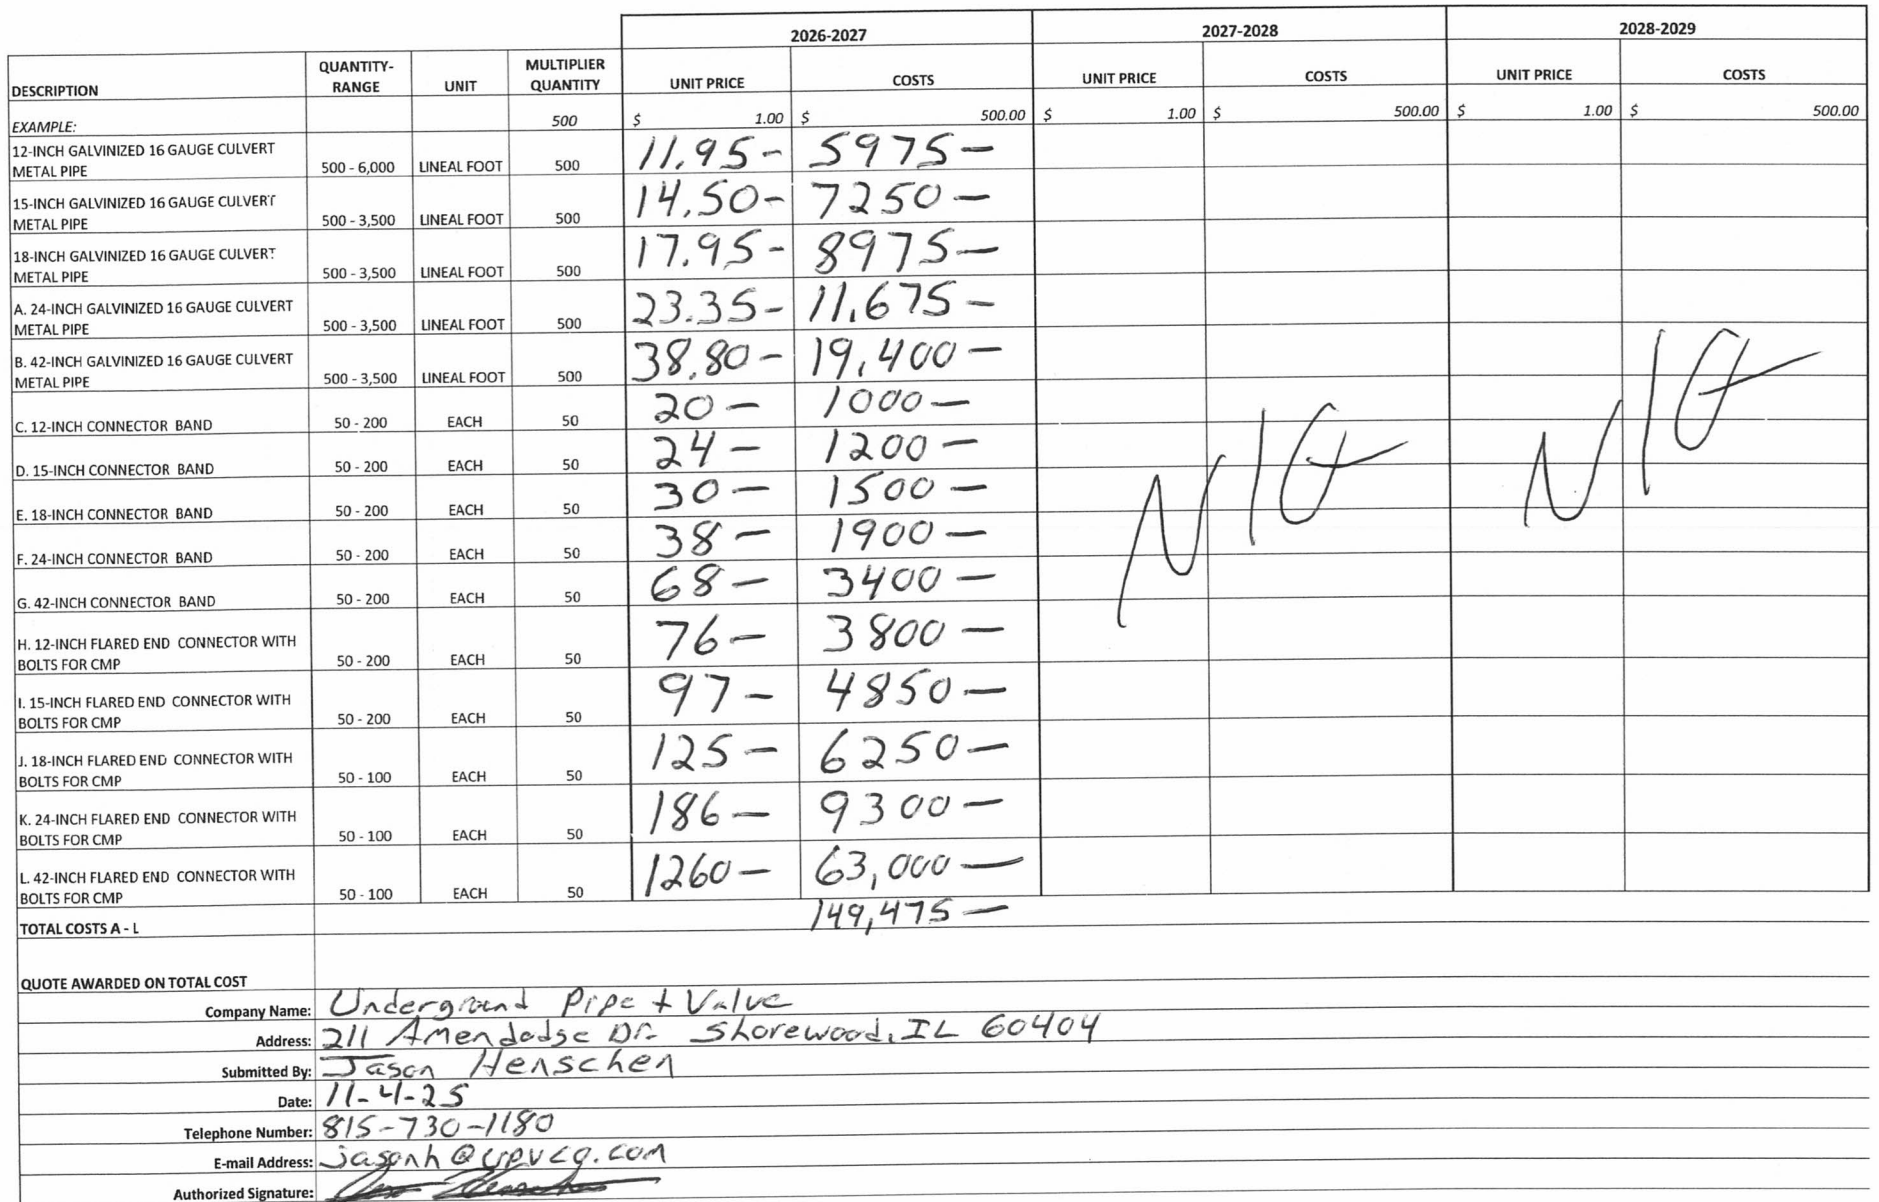 2026-2027 2027-2028 2028-2029
DESCRIPTION QUANTITY-RANGE UNIT MULTIPLIER QUANTITY UNIT PRICE COSTS UNIT PRICE COSTS UNIT PRICE COSTS
EXAMPLE: 500 $ 1.00 $ 500.00 $ 1.00 $ 500.00 $ 1.00 $ 500.00
12-INCH GALVINIZED 16 GAUGE CULVERT
METAL PIPE 500 - 6,000 LINEAL FOOT 500 11.95- 5975-
15-INCH GALVINIZED 16 GAUGE CULVERT
METAL PIPE 500 - 3,500 LINEAL FOOT 500 14.50- 7250-
18-INCH GALVINIZED 16 GAUGE CULVERT
METAL PIPE 500 - 3,500 LINEAL FOOT 500 17.95- 8975-
A. 24-INCH GALVINIZED 16 GAUGE CULVERT
METAL PIPE 500 - 3,500 LINEAL FOOT 500 23.35- 11,675-
B. 42-INCH GALVINIZED 16 GAUGE CULVERT
METAL PIPE 500 - 3,500 LINEAL FOOT 500 38.80- 19,400-
C. 12-INCH CONNECTOR BAND 50 - 200 EACH 50 20- 1000-
D. 15-INCH CONNECTOR BAND 50 - 200 EACH 50 24- 1200-
E. 18-INCH CONNECTOR BAND 50 - 200 EACH 50 30- 1500-
F. 24-INCH CONNECTOR BAND 50 - 200 EACH 50 38- 1900-
G. 42-INCH CONNECTOR BAND 50 - 200 EACH 50 68- 3400-
H. 12-INCH FLARED END CONNECTOR WITH
BOLTS FOR CMP 50 - 200 EACH 50 76- 3800-
I. 15-INCH FLARED END CONNECTOR WITH
BOLTS FOR CMP 50 - 200 EACH 50 97- 4850-
J. 18-INCH FLARED END CONNECTOR WITH
BOLTS FOR CMP 50 - 100 EACH 50 125- 6250-
K. 24-INCH FLARED END CONNECTOR WITH
BOLTS FOR CMP 50 - 100 EACH 50 186- 9300-
L. 42-INCH FLARED END CONNECTOR WITH
BOLTS FOR CMP 50 - 100 EACH 50 1260- 63,000-
TOTAL COSTS A - L 149,475-
QUOTE AWARDED ON TOTAL COST
Company Name: Underground Pipe + Valve
Address: 211 Amendodge Dr. Shorewood, IL 60404
Submitted By: Jason Henschen
Date: 11-4-25
Telephone Number: 815-730-1180
E-mail Address: jasonh@upvcg.com
Authorized Signature: